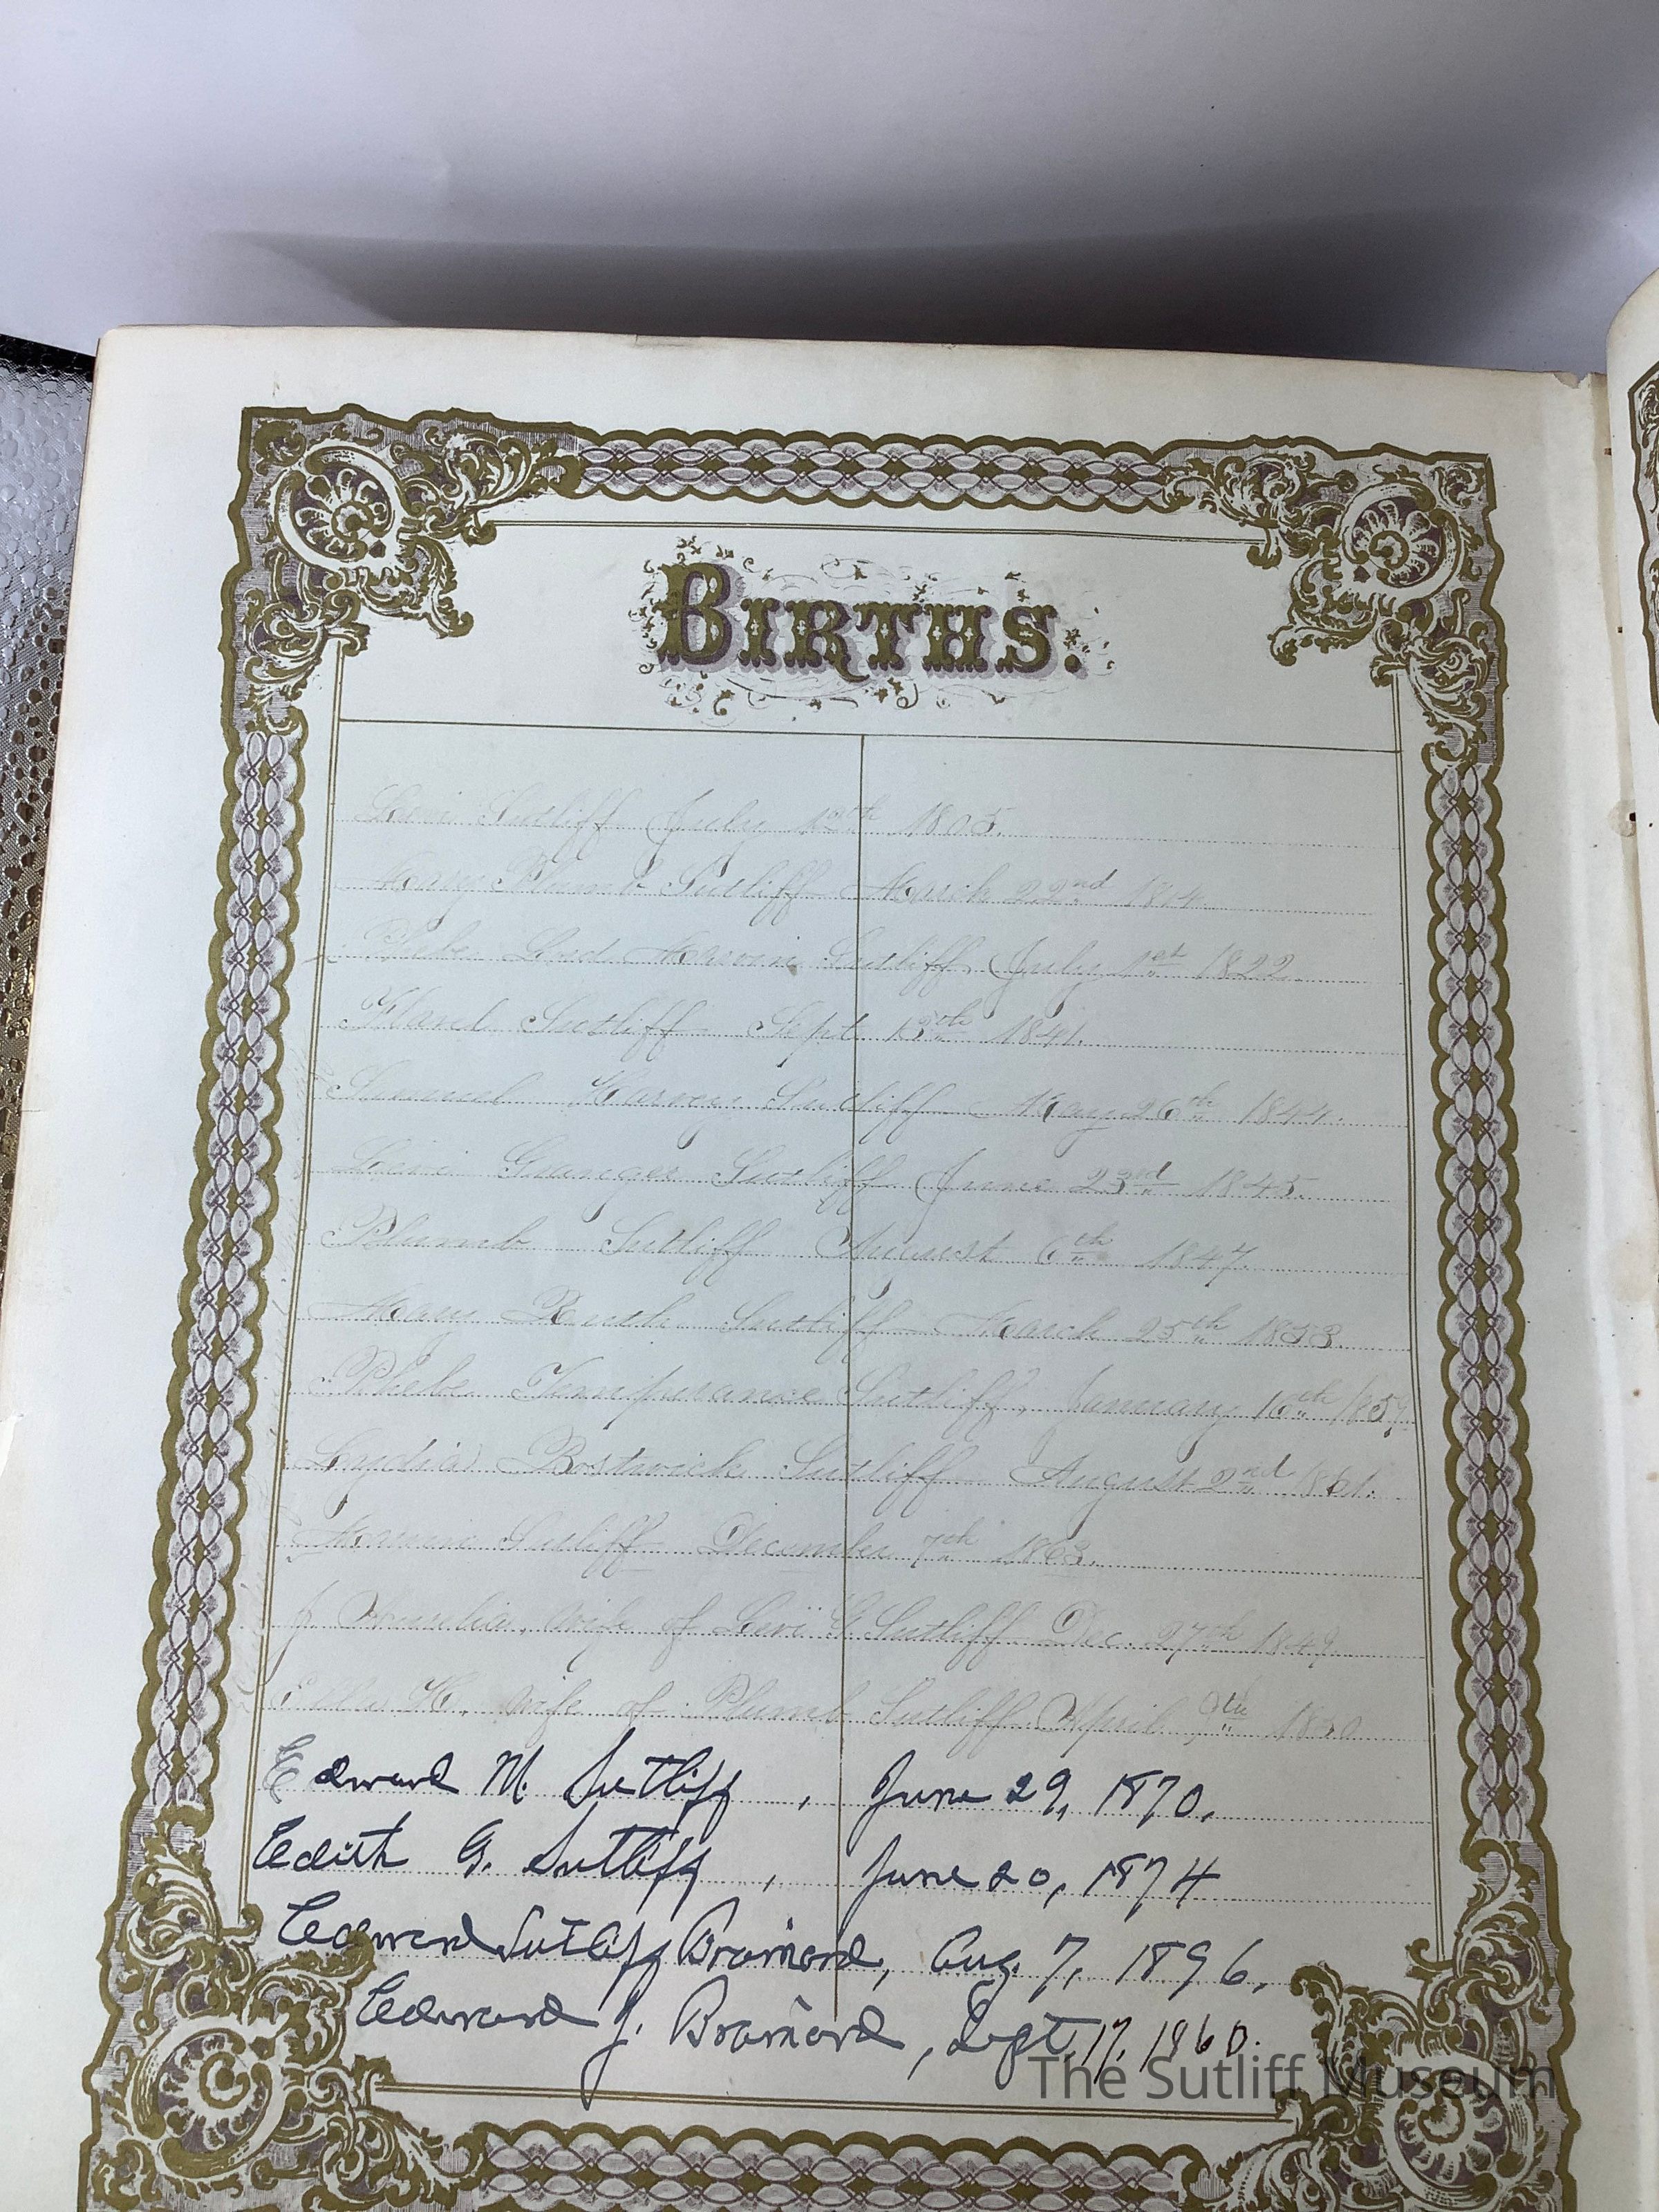 BIRTHS.
Levi Sutliff July 12th 1805.
Mary Plumb Sutliff March 22nd 1814.
Phebe Lord Marvin Sutliff, July 1st 1822
Flavel Sutliff Sept. 13th 1841.
Samuel Harvey Sutliff May 26th 1844.
Levi Granger Sutliff June 23rd 1845.
Plumb Sutliff August 6th 1847.
Mary Ruth Sutliff March 25th 1853.
Phebe Temperance Sutliff, January 16th 1859
Lydia Bostwick Sutliff August 2nd 1861.
Sutliff December 7th 1863.
J. Aurelia, wife of Levi G Sutliff Dec. 27th 1849
Ella H., wife of Plumb Sutliff April 9th 1850
Edward M. Sutliff, June 29, 1870.
Edith G. Sutliff, June 20, 1874
Edward Sutliff Brainard, Aug. 7, 1896.
Edward J. Brainard, Sept. 17, 1860.
The Sutliff Museum